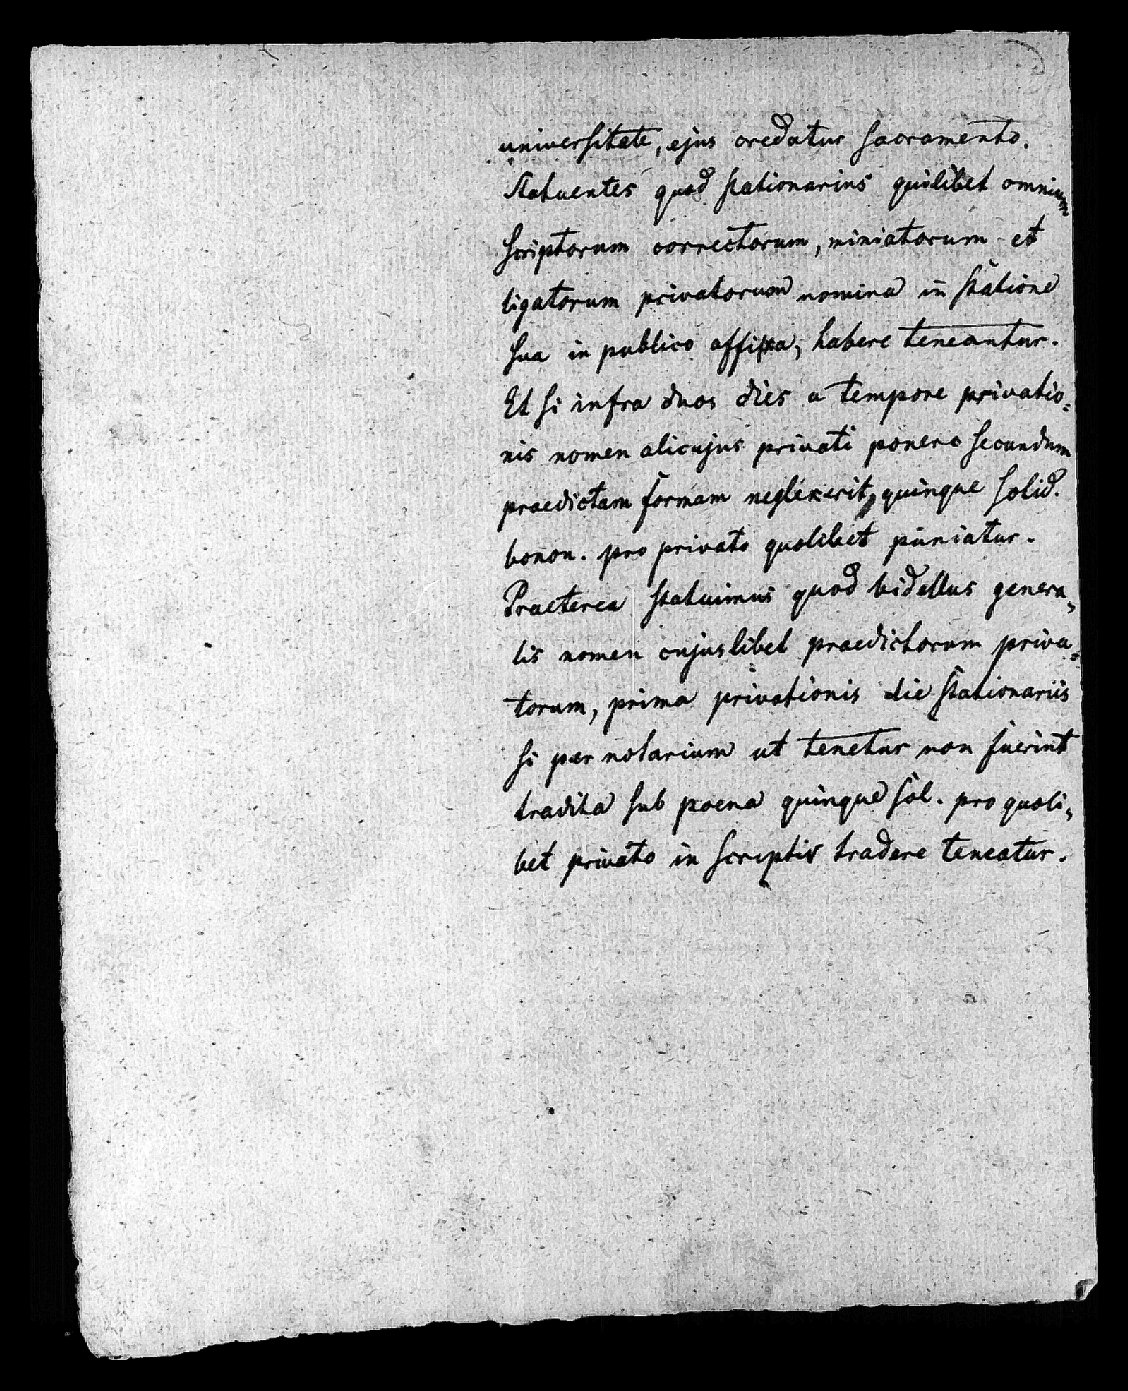 universitate, ejus credatur sacramento.
Statuentes quod stationarius quilibet omnium
scriptorum correctorum, miniatorum et
ligatorum privatorum nomina in statione
sua in publico affixa, habere teneantur.
Et si infra duos dies a tempore privatio=
nis nomen alicujus privati ponere secundum
praedictam formam neglexerit, quinque solid.
bonon. pro privato quolibet puniatur.
Praeterea statuimus quod bidellus genera=
lis nomen cujuslibet praedictorum priva=
torum, prima privationis die stationariis
si per notarium ut tenetur non fuerint
tradita sub poena quinque sol. pro quoli=
bet privato in scriptis tradere teneatur.